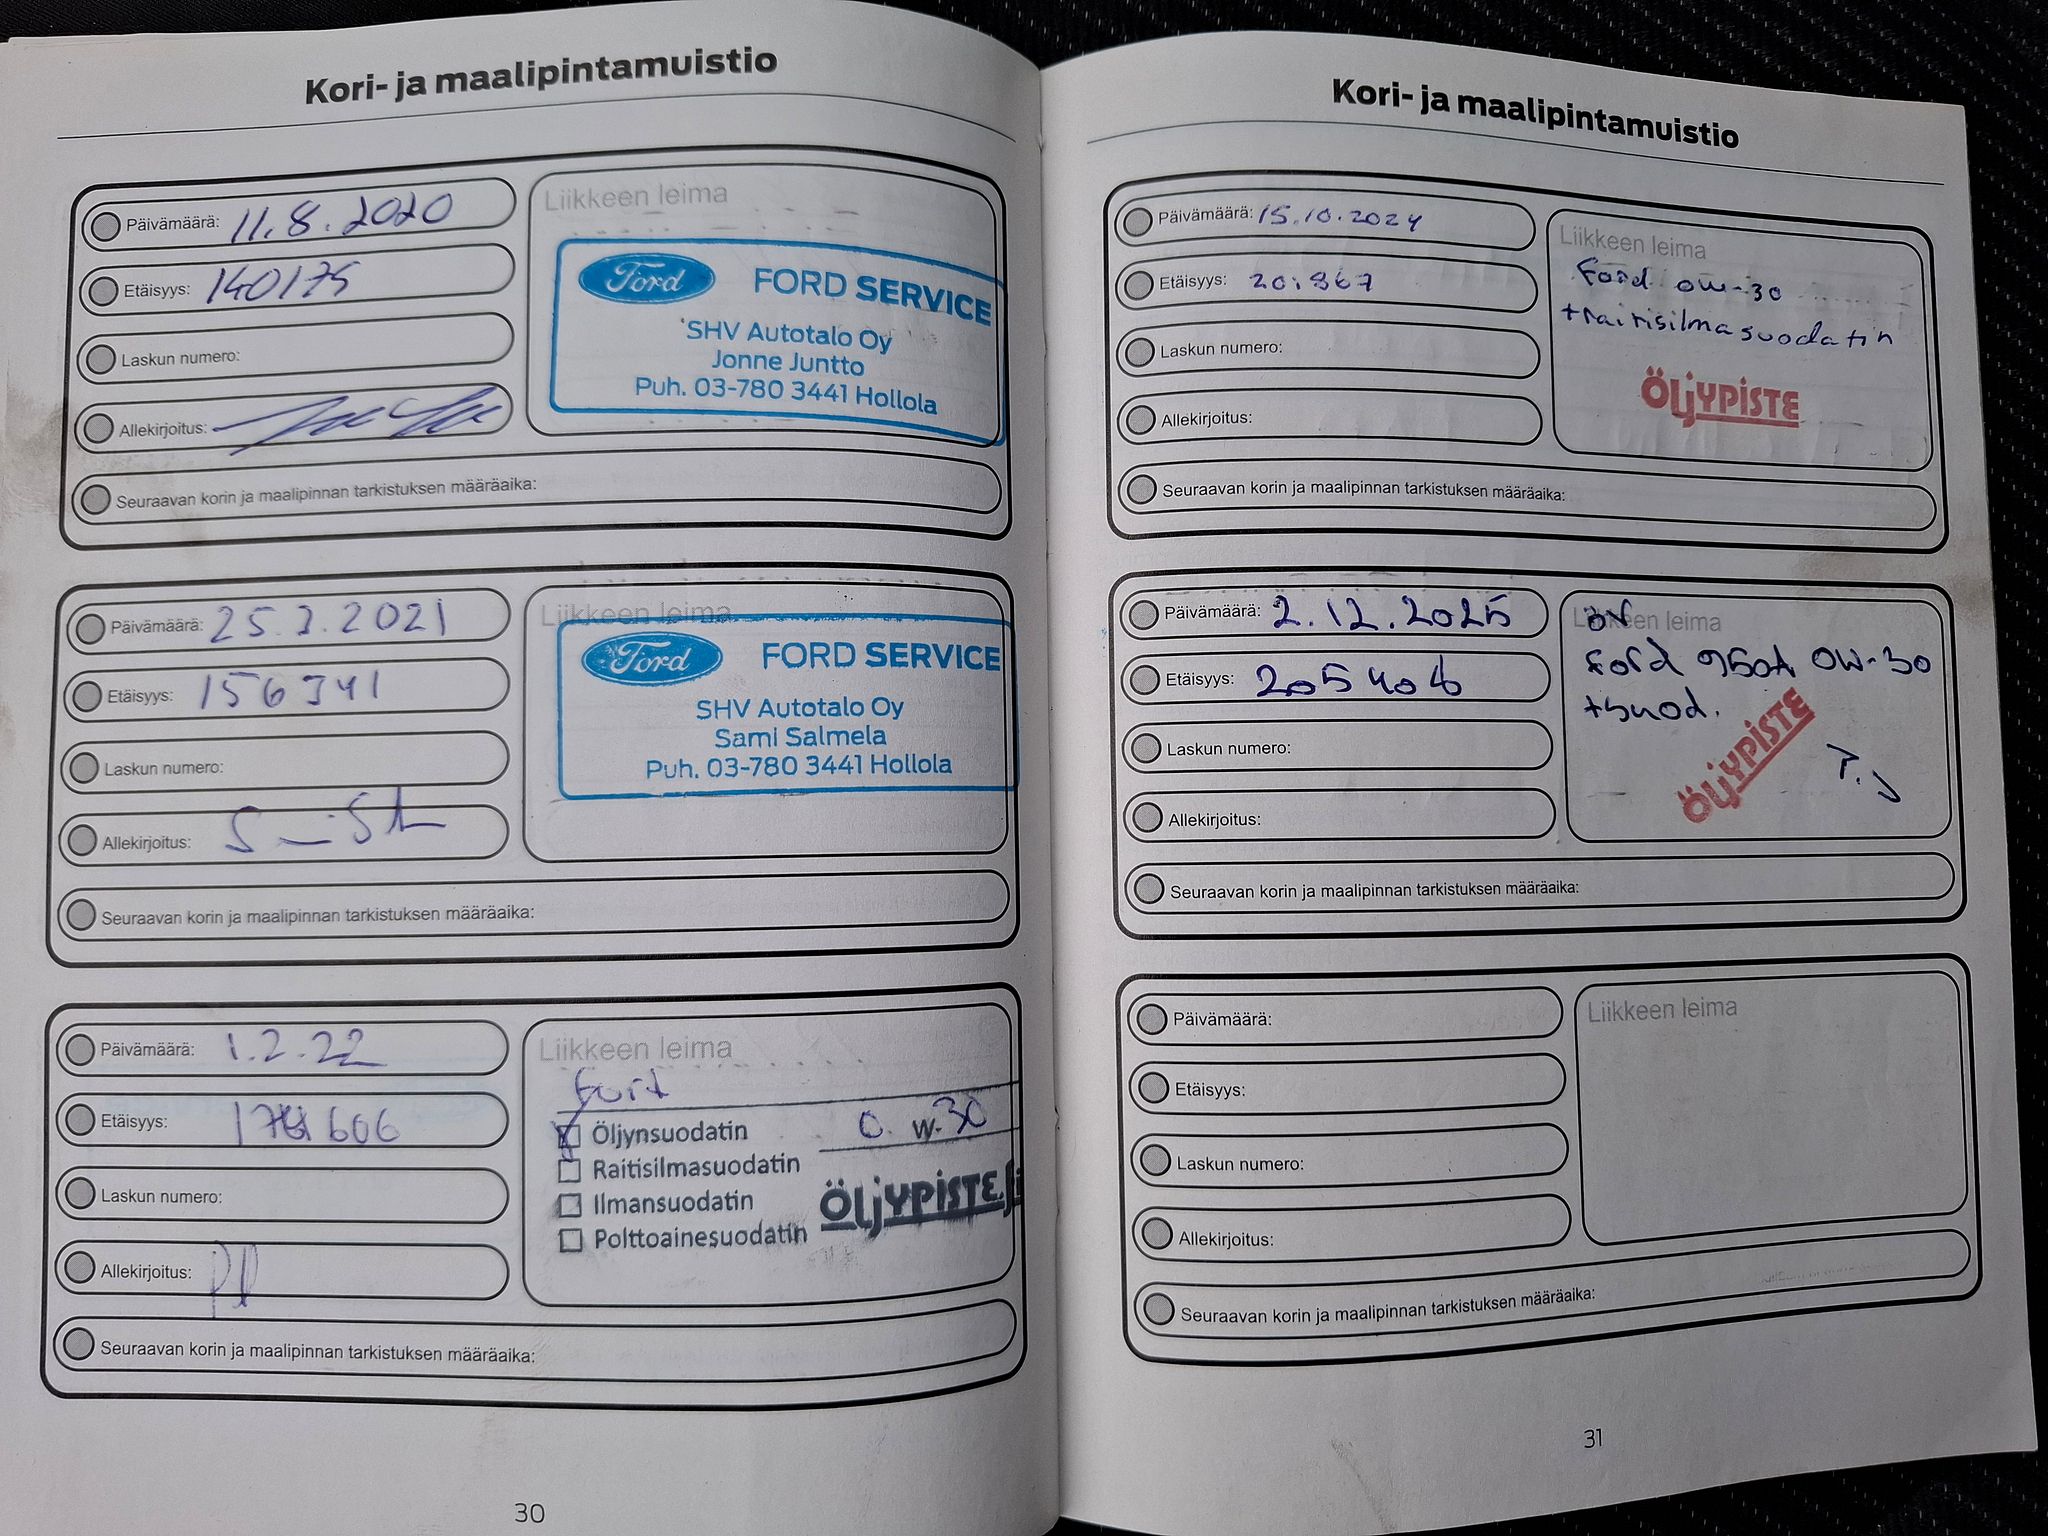 Kori- ja maalipintamuistio
Päivämäärä: 11.8.2020
Etäisyys: 140175
Laskun numero:
Allekirjoitus:
Seuraavan korin ja maalipinnan tarkistuksen määräaika:
Liikkeen leima
Ford FORD SERVICE
SHV Autotalo Oy
Jonne Juntto
Puh. 03-780 3441 Hollola
Päivämäärä: 25.3.2021
Etäisyys: 156341
Laskun numero:
Allekirjoitus:
Seuraavan korin ja maalipinnan tarkistuksen määräaika:
Liikkeen leima
Ford FORD SERVICE
SHV Autotalo Oy
Sami Salmela
Puh. 03-780 3441 Hollola
Päivämäärä: 1.2.22
Etäisyys:
Laskun numero:
Allekirjoitus:
Seuraavan korin ja maalipinnan tarkistuksen määräaika:
Liikkeen leima
Ford
Öljynsuodatin 0 W-30
Raitisilmasuodatin
Ilmansuodatin
Polttoainesuodatin
ÖljyPISTE.fi
30
Kori- ja maalipintamuistio
Päivämäärä: 15.10.2024
Etäisyys: 201867
Laskun numero:
Allekirjoitus:
Seuraavan korin ja maalipinnan tarkistuksen määräaika:
Liikkeen leima
Ford 0W-30
+raitisilmasuodatin
ÖljyPISTE
Päivämäärä: 2.12.2025
Etäisyys: 205406
Laskun numero:
Allekirjoitus:
Seuraavan korin ja maalipinnan tarkistuksen määräaika:
Liikkeen leima
Ford 950A 0W-30
+suod.
ÖljyPISTE
T.J
Päivämäärä:
Etäisyys:
Laskun numero:
Allekirjoitus:
Seuraavan korin ja maalipinnan tarkistuksen määräaika:
Liikkeen leima
31